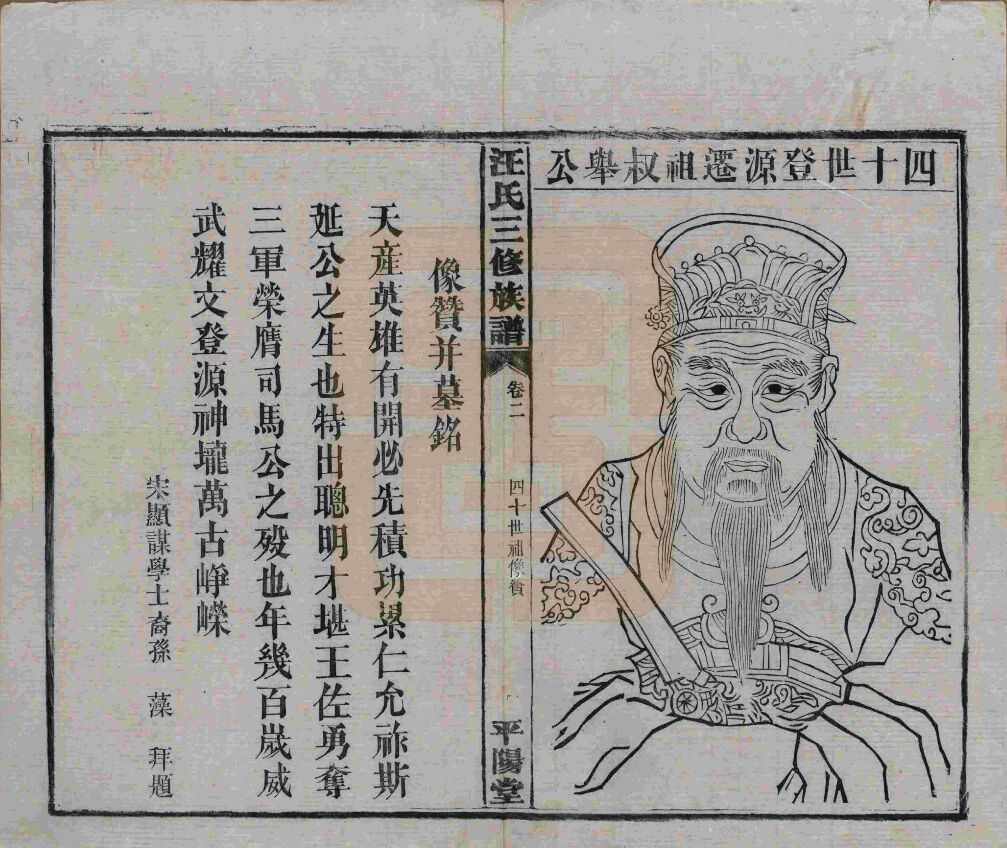 四十世登源遷祖叔舉公
汪氏三修族譜
卷二
四十世祖像贊
平陽堂
像贊并墓銘
天產英雄有開必先積功累仁允祚斯
延公之生也特出聰明才堪王佐勇奪
三軍榮膺司馬公之歿也年幾百歲威
武耀文登源神壠萬古崢嶸
宋顯謨學士裔孫　藻　拜題